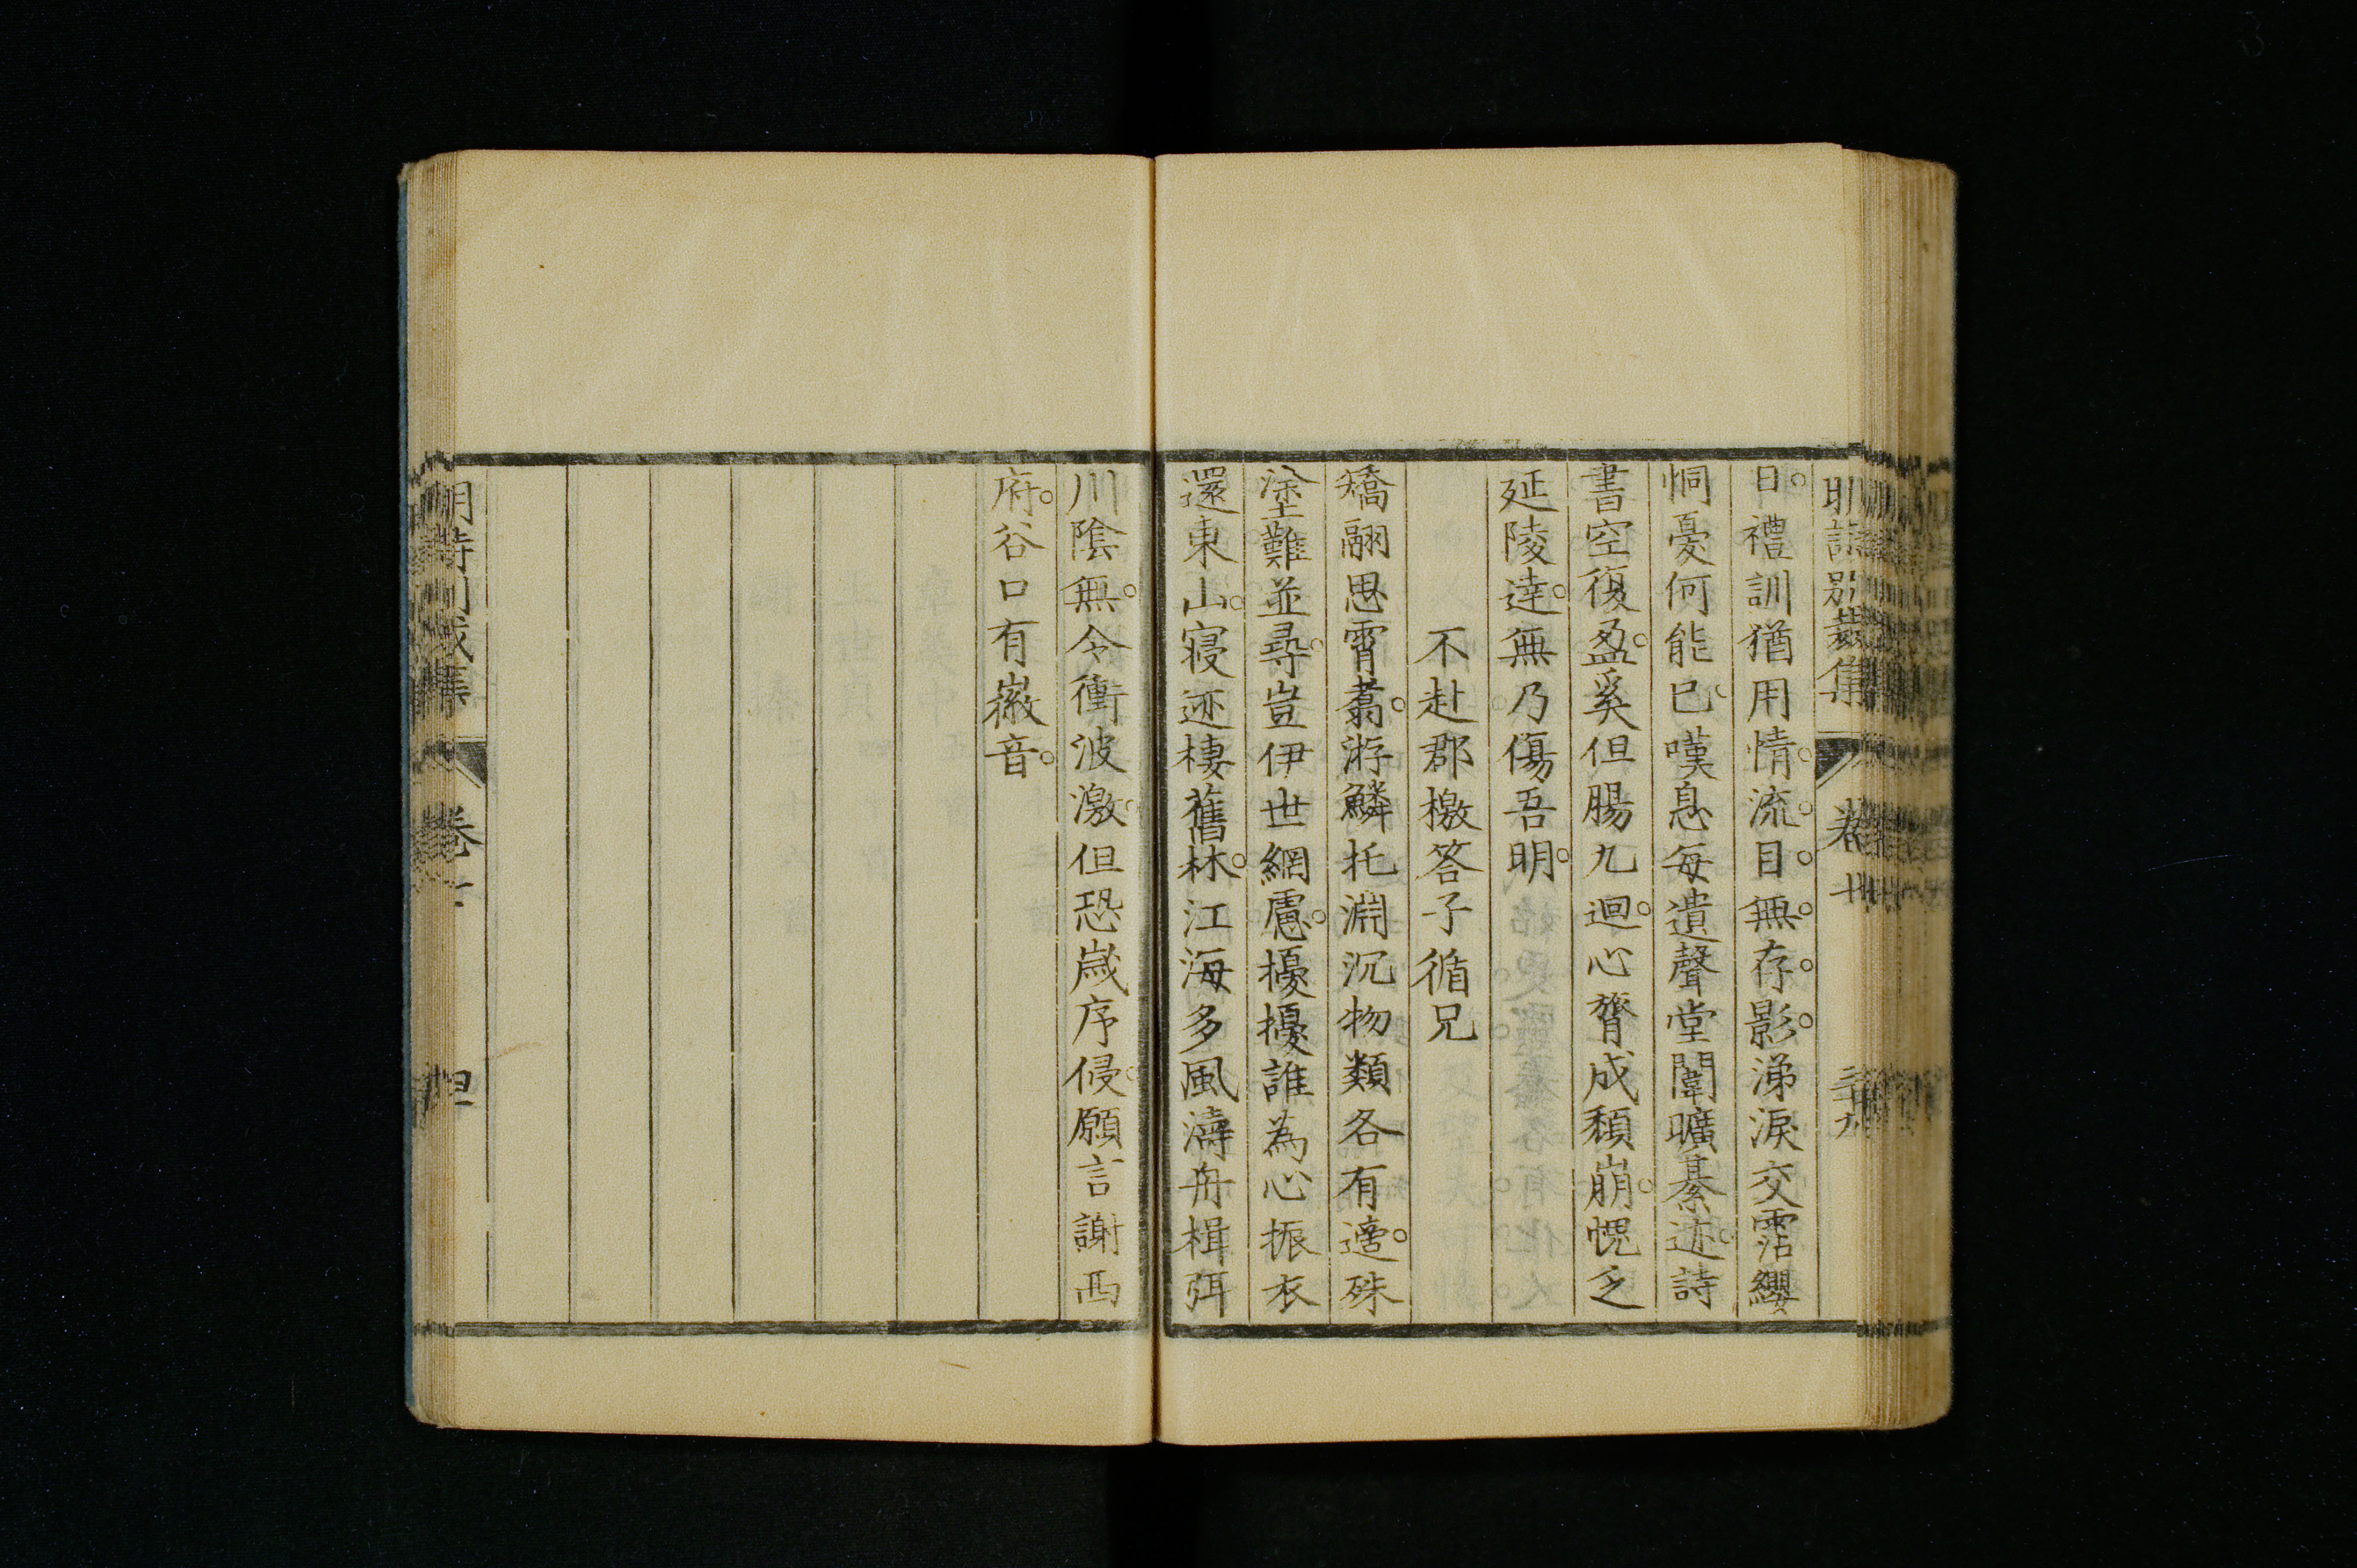 明詩別裁集 卷十 三十九
日禮訓猶用情流目無存影涕淚交霑纓
恫憂何能已嘆息每遺聲堂闈曠綦迹詩
書空復盈奚但腸九迴心膂成頹崩愧乏
延陵達無乃傷吾明
不赴郡檄答子循兄
矯翮思霄翥游鱗托淵沉物類各有適殊
塗難並尋豈伊世網慮擾擾誰為心振衣
還東山寢迹棲舊林江海多風濤舟楫弭
川陰無令衝波激但恐歲序侵願言謝西
府谷口有徽音
明詩別裁集 卷十